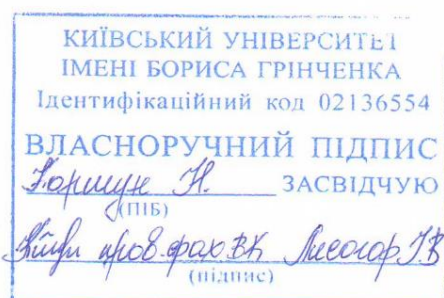 КИЇВСЬКИЙ УНІВЕРСИТЕТ
ІМЕНІ БОРИСА ГРІНЧЕНКА
Ідентифікаційний код 02136554
ВЛАСНОРУЧНИЙ ПІДПИС
Коршун Н. ЗАСВІДЧУЮ
(ПІБ)
пров. фах ВК Лисогор І.В
(підпис)